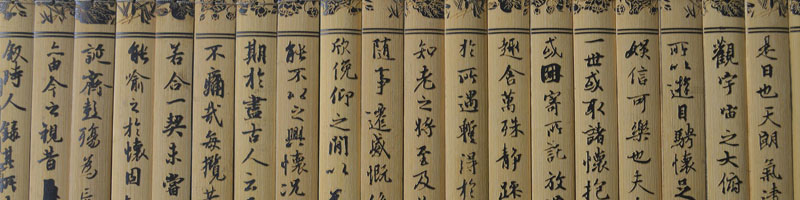 是日也天朗氣清
觀宇宙之大俯
所以遊目騁懷足
娛信可樂也夫
一世或取諸懷抱
或因寄所託放
趣舍萬殊靜躁
於所遇暫得於
知老之將至及其
隨事遷感慨係
欣俛仰之間以為
能不以之興懷況
期於盡古人云
不痛哉每攬昔
若合一契未嘗
能喻之於懷固
誕齊彭殤為
由今之視昔
敘時人錄其所